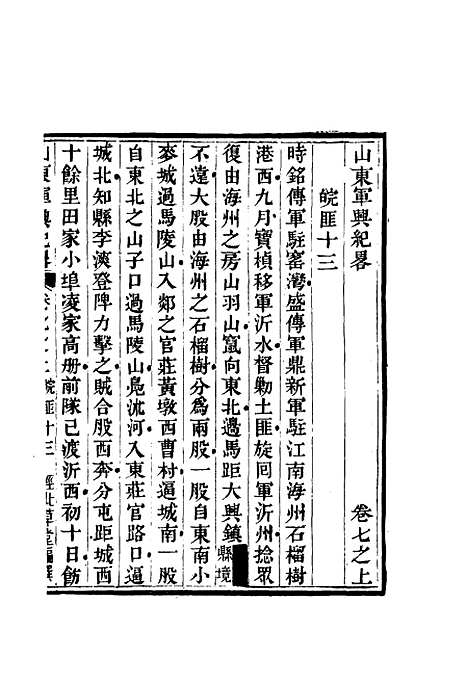 山東軍興紀畧　卷七之上
皖匪十三
時銘傳軍駐窰灣盛傳軍鼎新軍駐江南海州石榴樹
港西九月寶楨移軍沂水督勦土匪旋回軍沂州捻眾
復由海州之房山羽山竄向東北邊馬距大興鎮縣境
不遠大股由海州之石榴樹分爲兩股一股自東南小
麥城過馬陵山入郯之官莊黃墩西曹村逼城南一股
自東北之山子口過馬陵山鳧沭河入東莊官路口逼
城北知縣李淓登陴力擊之賊合股西奔分屯距城西
十餘里田家小埠凌家高册前隊已渡沂西初十日飭
山東軍興紀畧 卷七之上 皖匪十三